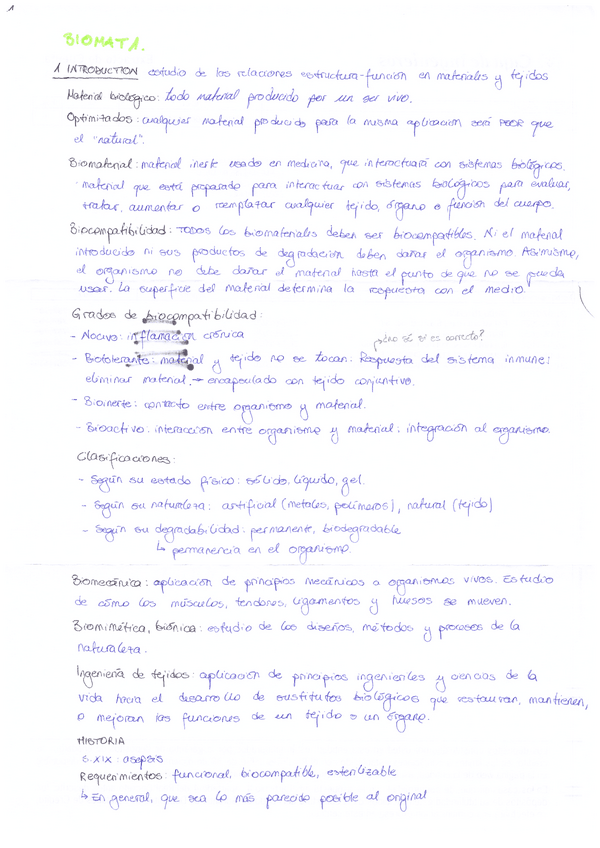 1
BIOMAT 1.
1 INTRODUCTION estudio de las relaciones estructura-función en materiales y tejidos
Material biológico: todo material producido por un ser vivo.
Optimizados: cualquier material producido para la misma aplicación será PEOR que
el "natural".
Biomaterial: material inerte usado en medicina, que interactuará con sistemas biológicos.
· material que está preparado para interactuar con sistemas biológicos para evaluar,
tratar, aumentar o reemplazar cualquier tejido, órgano o función del cuerpo.
Biocompatibilidad: TODOS los biomateriales deben ser biocompatibles. Ni el material
introducido ni sus productos de degradación deben dañar el organismo. Asimismo,
el organismo no debe dañar el material hasta el punto de que no se pueda
usar. La superficie del material determina la respuesta con el medio.
Grados de biocompatibilidad:
- Nocivo: inflamación crónica
¿no sé si es correcto?
- Biotolerante: material y tejido no se tocan. Respuesta del sistema inmune:
eliminar material → encapsulado con tejido conjuntivo.
- Bioinerte: contacto entre organismo y material.
- Bioactivo: interacción entre organismo y material: integración al organismo.
Clasificaciones:
- Según su estado físico: sólido, líquido, gel.
- Según su naturaleza: artificial (metales, polímeros), natural (tejido)
- Según su degradabilidad: permanente, biodegradable
↳ permanencia en el organismo.
Biomecánica: aplicación de principios mecánicos a organismos vivos. Estudio
de cómo los músculos, tendones, ligamentos y huesos se mueven.
Biomimética, biónica: estudio de los diseños, métodos y procesos de la
naturaleza.
Ingeniería de tejidos: aplicación de principios ingenieriles y ciencias de la
vida hacia el desarrollo de sustitutos biológicos que restauran, mantienen,
o mejoran las funciones de un tejido o un órgano.
HISTORIA
S. XIX: asepsis
Requerimientos: funcional, biocompatible, esterilizable
↳ En general, que sea lo más parecido posible al original